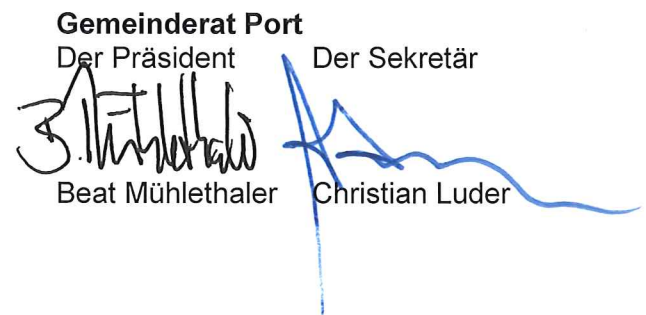 Gemeinderat Port
Der Präsident Der Sekretär
B. Mühlethaler
Beat Mühlethaler Christian Luder